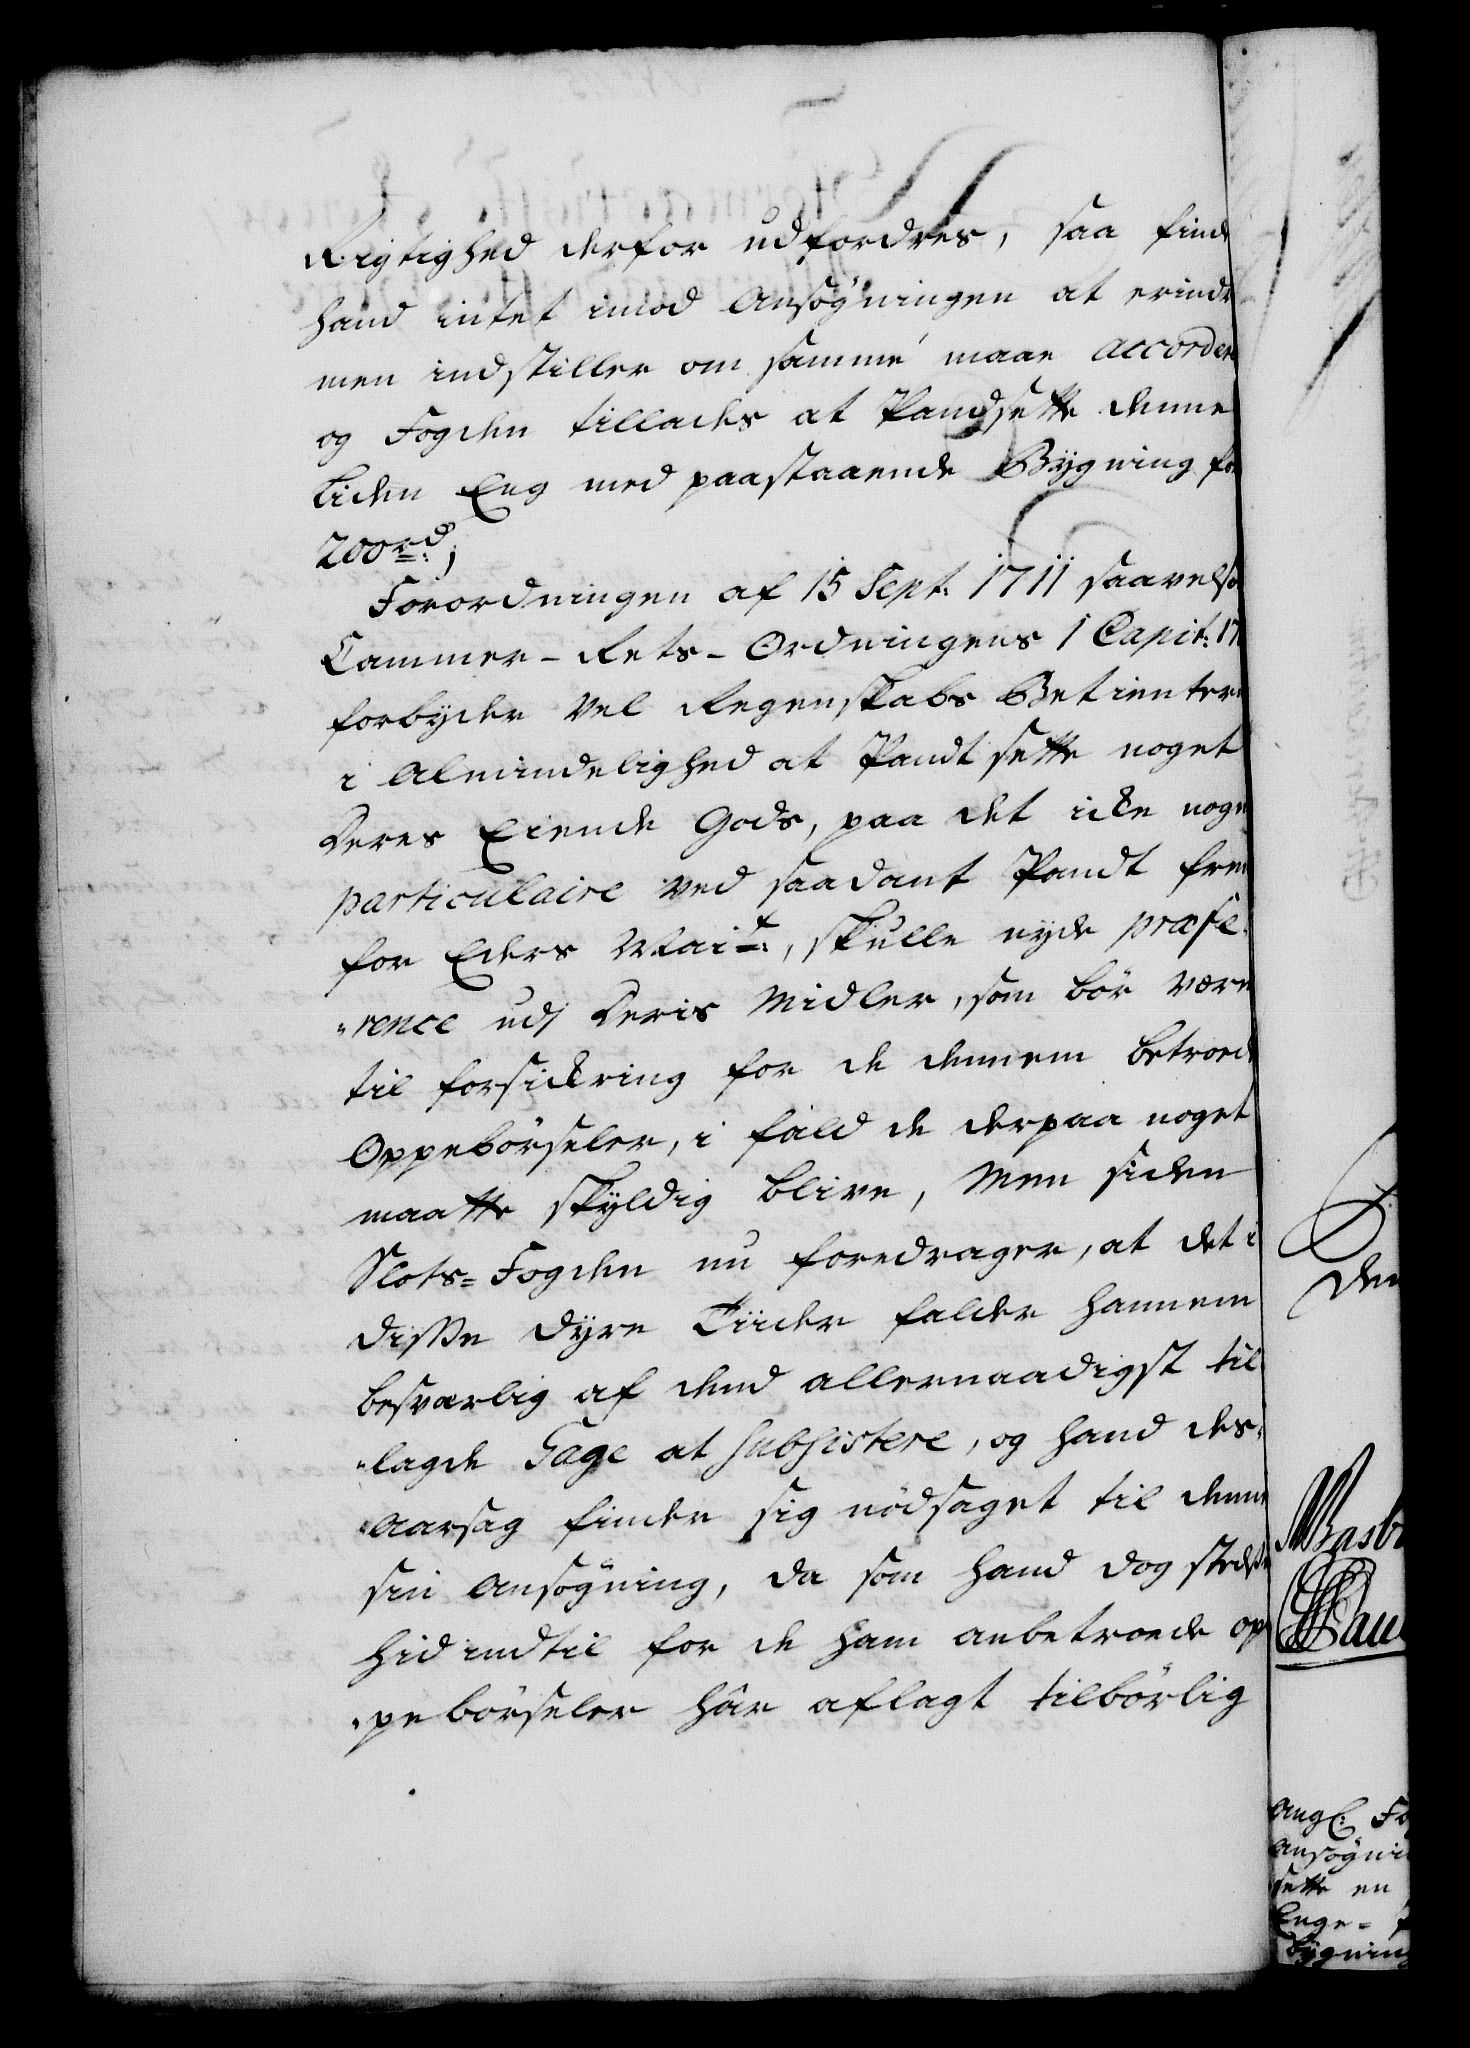 Rigtighed derfor udfordres, saa find
hand intet imod Ansøgningen at erindr
men indstiller om samme maae accorder
og Fogden tillades at Pandsætte denne
liden Eng med paastaaende Bygning for
200 rd:;
Forordningen af 15 Sept: 1711 saavelso
Cammer-Rets-Ordningens 1 Capit: 17
forbyder vel Regenskabs Betientere
i Almindelighed at Pandtsette noget
Deres Eiende Gods, paa det icke noge
particulaire ved saadant Pandt frem
for Eders Mai:t, skulle nyde præfe-
"rence udj Deris Midler, som bør være
til forsickring for de dennem betroed
Oppebørseler, i fald de derpaa noget
maatte skyldig blive, Men siden
Slots-Fogden nu foredrager, at det i
disse dyre Tiider falder hannem
besværlig af dend allernaadigst til
"lagde Gage at subsistere, og hand des
"Aarsag finder sig nødsaget til denne
sin Ansøgning, da som hand dog stedse
hid indtil for de ham anbetroede op
"pebørseler hår aflagt tilbørlig
Den
Ang: Fo
Ansøgni
sette en
Enge-
bygning